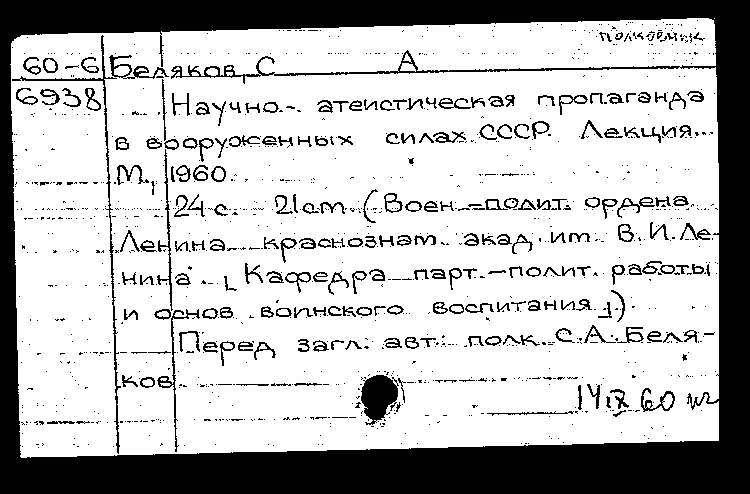 полковник
60-6 Беляков, С А
6938 Научно-атеистическая пропаганда
в вооруженных силах СССР. Лекция.
М., 1960.
24 с. 21 cm. (Воен.-полит. ордена
Ленина краснознам. акад. им. В.И.Ле-
нина. [Кафедра парт.-полит. работы
и основ воинского воспитания])
Перед загл. авт.: полк. С.А. Беля-
ков
14 IX 60